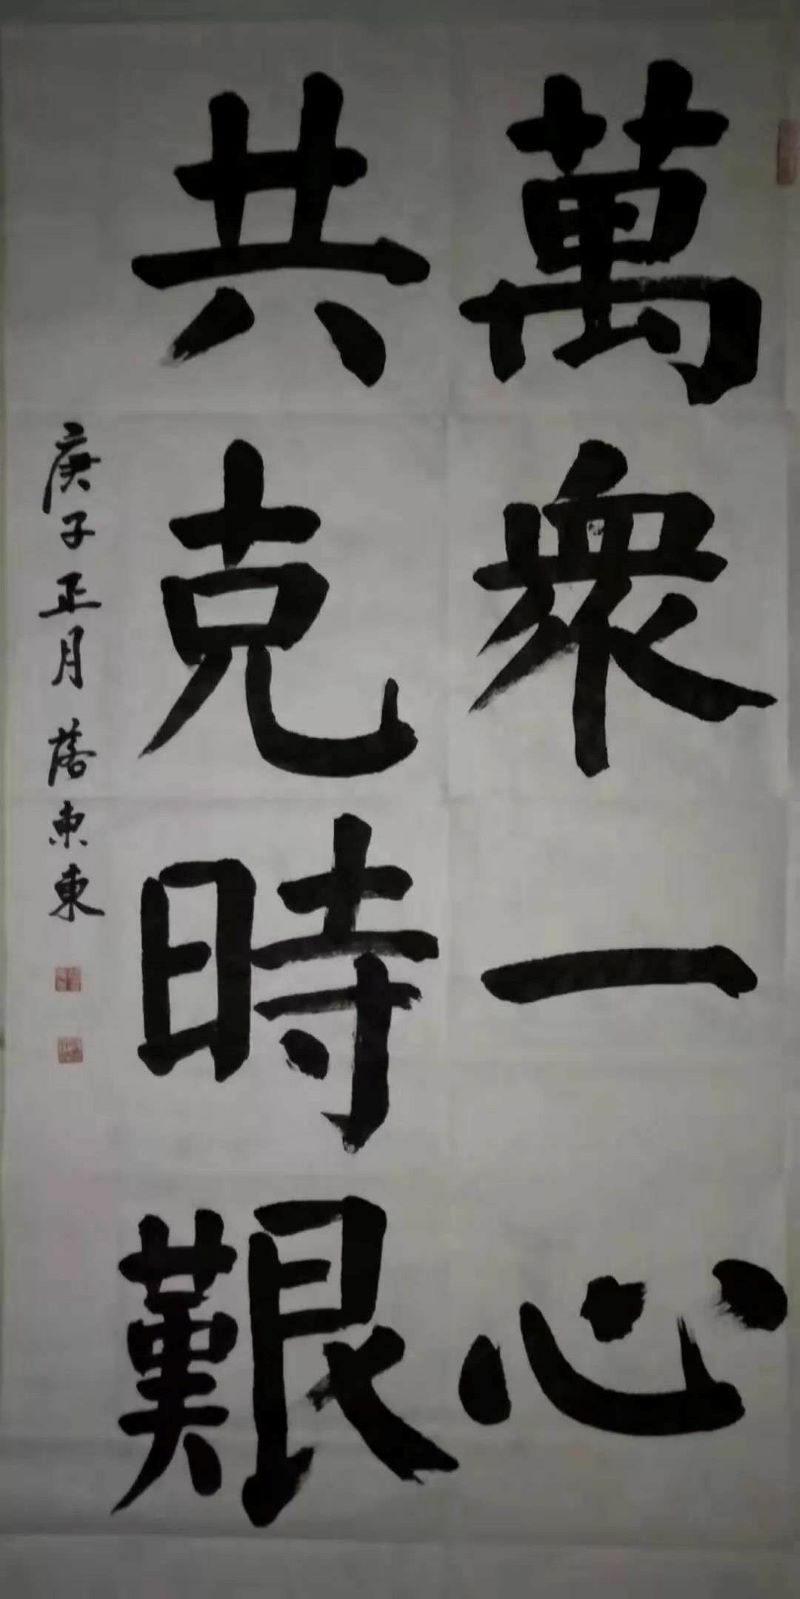 萬衆一心
共克時艱
庚子正月落東東